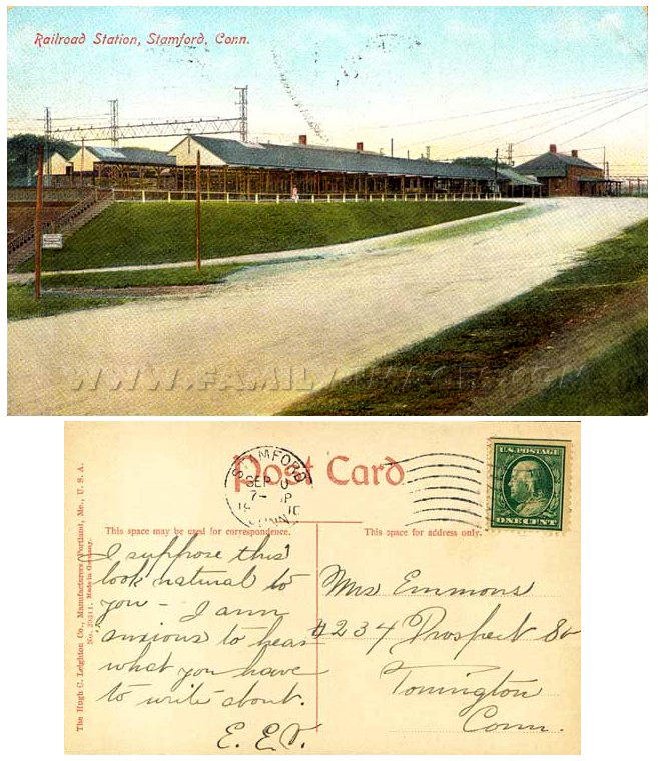 Railroad Station, Stamford, Conn.
Post Card
STAMFORD
SEP
7-
CONN.
U.S. POSTAGE
ONE CENT
This space may be used for correspondence.
This space for address only.
The Hugh C. Leighton Co., Manufacturers, Portland, Me., U. S. A.
Made in Germany.
I suppose this
look natural to
you - I am
anxious to hear
what you have
to write about.
Mrs Emmons
#234 Prospect St
Torrington
Conn.